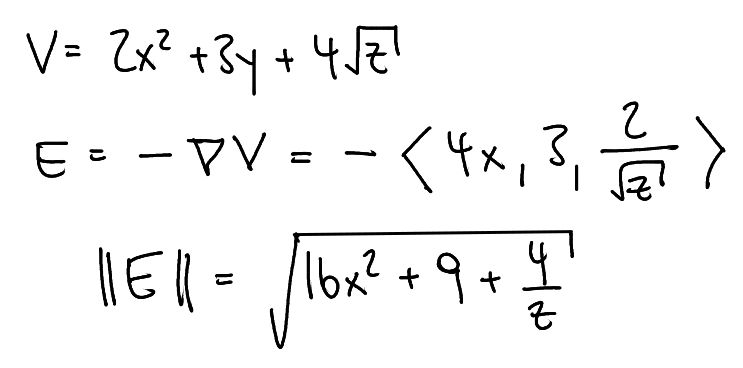 V = 2x² + 3y + 4√z
E = -∇V = -⟨4x, 3, 2/√z⟩
‖E‖ = √(16x² + 9 + 4/z)